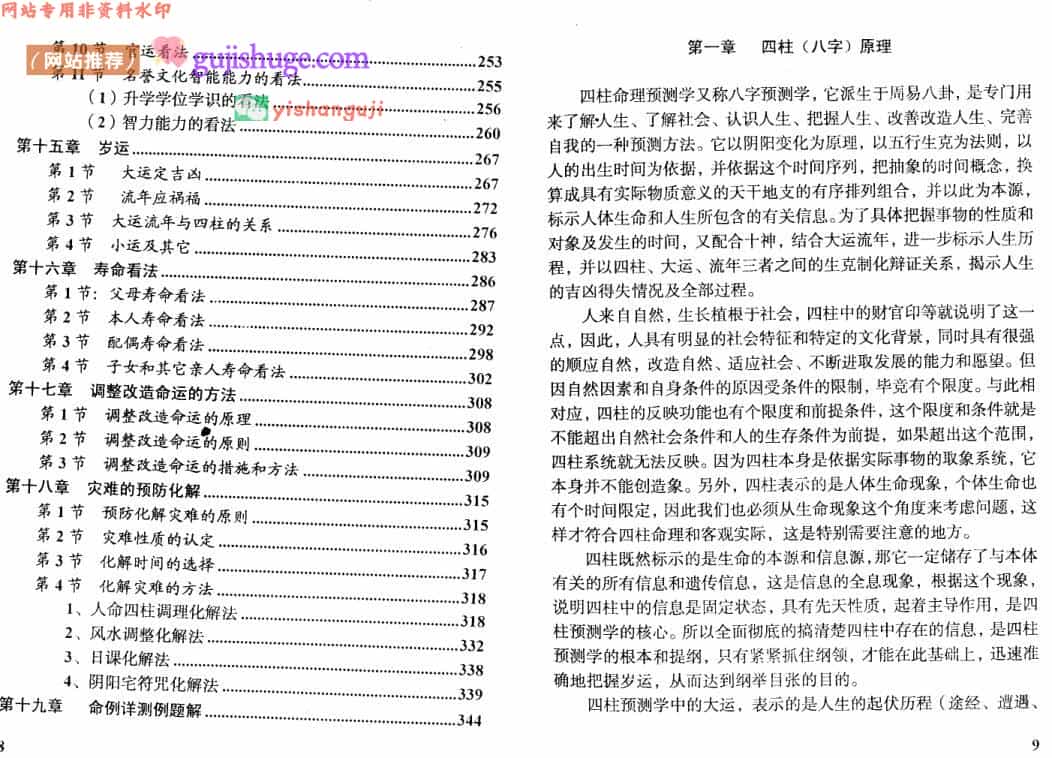 网站专用非资料水印
第10节 官运看法 253
(网站推荐) gujishuge.com
第11节 名誉文化智能能力的看法 255
(1)升学学位学识的看法 256
yishanguji
(2)智力能力的看法 260
第十五章 岁运 267
第1节 大运定吉凶 267
第2节 流年应祸福 272
第3节 大运流年与四柱的关系 276
第4节 小运及其它 283
第十六章 寿命看法 286
第1节: 父母寿命看法 287
第2节 本人寿命看法 292
第3节 配偶寿命看法 298
第4节 子女和其它亲人寿命看法 302
第十七章 调整改造命运的方法 308
第1节 调整改造命运的原理 308
第2节 调整改造命运的原则 309
第3节 调整改造命运的措施和方法 309
第十八章 灾难的预防化解 315
第1节 预防化解灾难的原则 315
第2节 灾难性质的认定 316
第3节 化解时间的选择 317
第4节 化解灾难的方法 318
1、人命四柱调理化解法 318
2、风水调整化解法 332
3、日课化解法 338
4、阴阳宅符咒化解法 339
第十九章 命例详测例题解 344
8
第一章 四柱(八字)原理
四柱命理预测学又称八字预测学,它派生于周易八卦,是专门用
来了解人生、了解社会、认识人生、把握人生、改善改造人生、完善
自我的一种预测方法。它以阴阳变化为原理,以五行生克为法则,以
人的出生时间为依据,并依据这个时间序列,把抽象的时间概念,换
算成具有实际物质意义的天干地支的有序排列组合,并以此为本源,
标示人体生命和人生所包含的有关信息。为了具体把握事物的性质和
对象及发生的时间,又配合十神,结合大运流年,进一步标示人生历
程,并以四柱、大运、流年三者之间的生克制化辩证关系,揭示人生
的吉凶得失情况及全部过程。
人来自自然,生长植根于社会,四柱中的财官印等就说明了这一
点,因此,人具有明显的社会特征和特定的文化背景,同时具有很强
的顺应自然,改造自然、适应社会、不断进取发展的能力和愿望。但
因自然因素和自身条件的原因受条件的限制,毕竟有个限度。与此相
对应,四柱的反映功能也有个限度和前提条件,这个限度和条件就是
不能超出自然社会条件和人的生存条件为前提,如果超出这个范围,
四柱系统就无法反映。因为四柱本身是依据实际事物的取象系统,它
本身并不能创造象。另外,四柱表示的是人体生命现象,个体生命也
有个时间限定,因此我们也必须从生命现象这个角度来考虑问题,这
样才符合四柱命理和客观实际,这是特别需要注意的地方。
四柱既然标示的是生命的本源和信息源,那它一定储存了与本体
有关的所有信息和遗传信息,这是信息的全息现象,根据这个现象,
说明四柱中的信息是固定状态,具有先天性质,起着主导作用,是四
柱预测学的核心。所以全面彻底的搞清楚四柱中存在的信息,是四柱
预测学的根本和提纲,只有紧紧抓住纲领,才能在此基础上,迅速准
确地把握岁运,从而达到纲举目张的目的。
四柱预测学中的大运,表示的是人生的起伏历程(途经、遭遇、
9